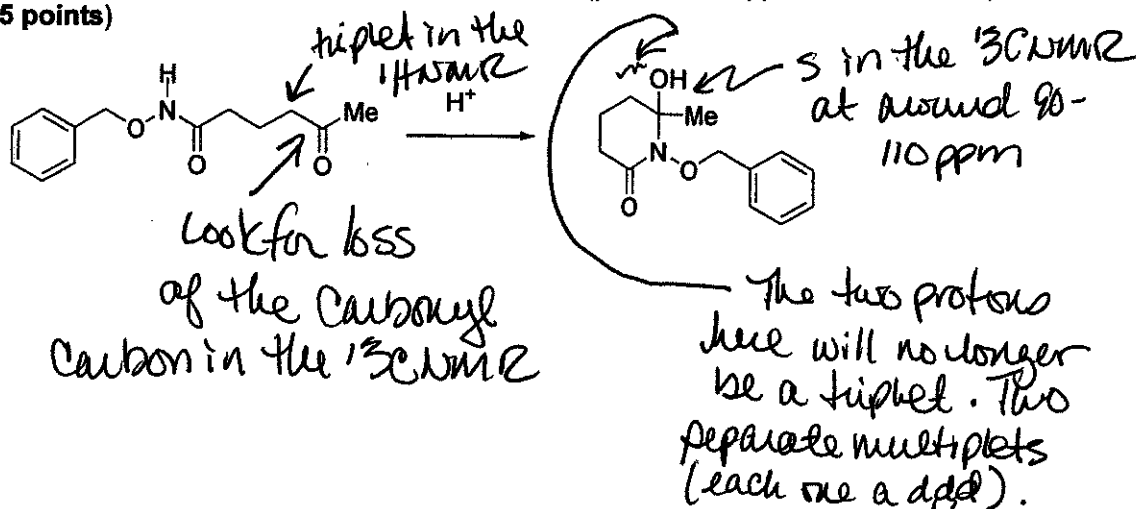 5 points)
triplet in the
1H NMR
H
N
O
O
Me
O
H+
OH
Me
N
O
O
s in the 13C NMR
at around 90-
110 ppm
Look for loss
of the Carbonyl
Carbon in the 13C NMR
The two protons
here will no longer
be a triplet. Two
separate multiplets
(each one a ddd).